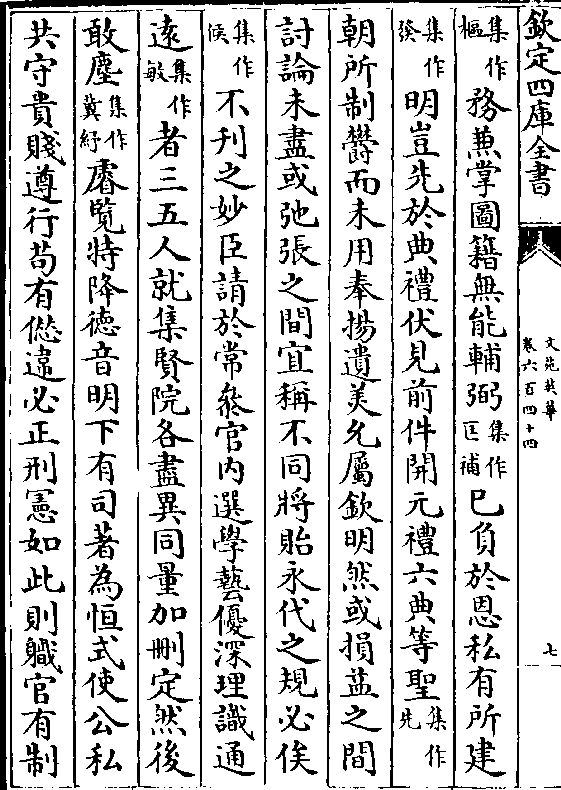 欽定四庫全書
文苑英華
卷六百四十四
七
集作樞務兼掌圖籍無能輔弼集作匡補已負於恩私有所建
集作發明豈先於典禮伏見前件開元禮六典等聖集作先
朝所制鬱而未用奉揚遺美允屬欽明然或損益之間
討論未盡或弛張之間宜稱不同將貽永代之規必俟
集作候不刊之妙臣請於常叅官内選學藝優深理識通
遠集作敏者三五人就集賢院各盡異同量加刪定然後
敢塵集作冀紓睿覽特降徳音明下有司著為恒式使公私
共守貴賤遵行苟有愆違必正刑憲如此則職官有制